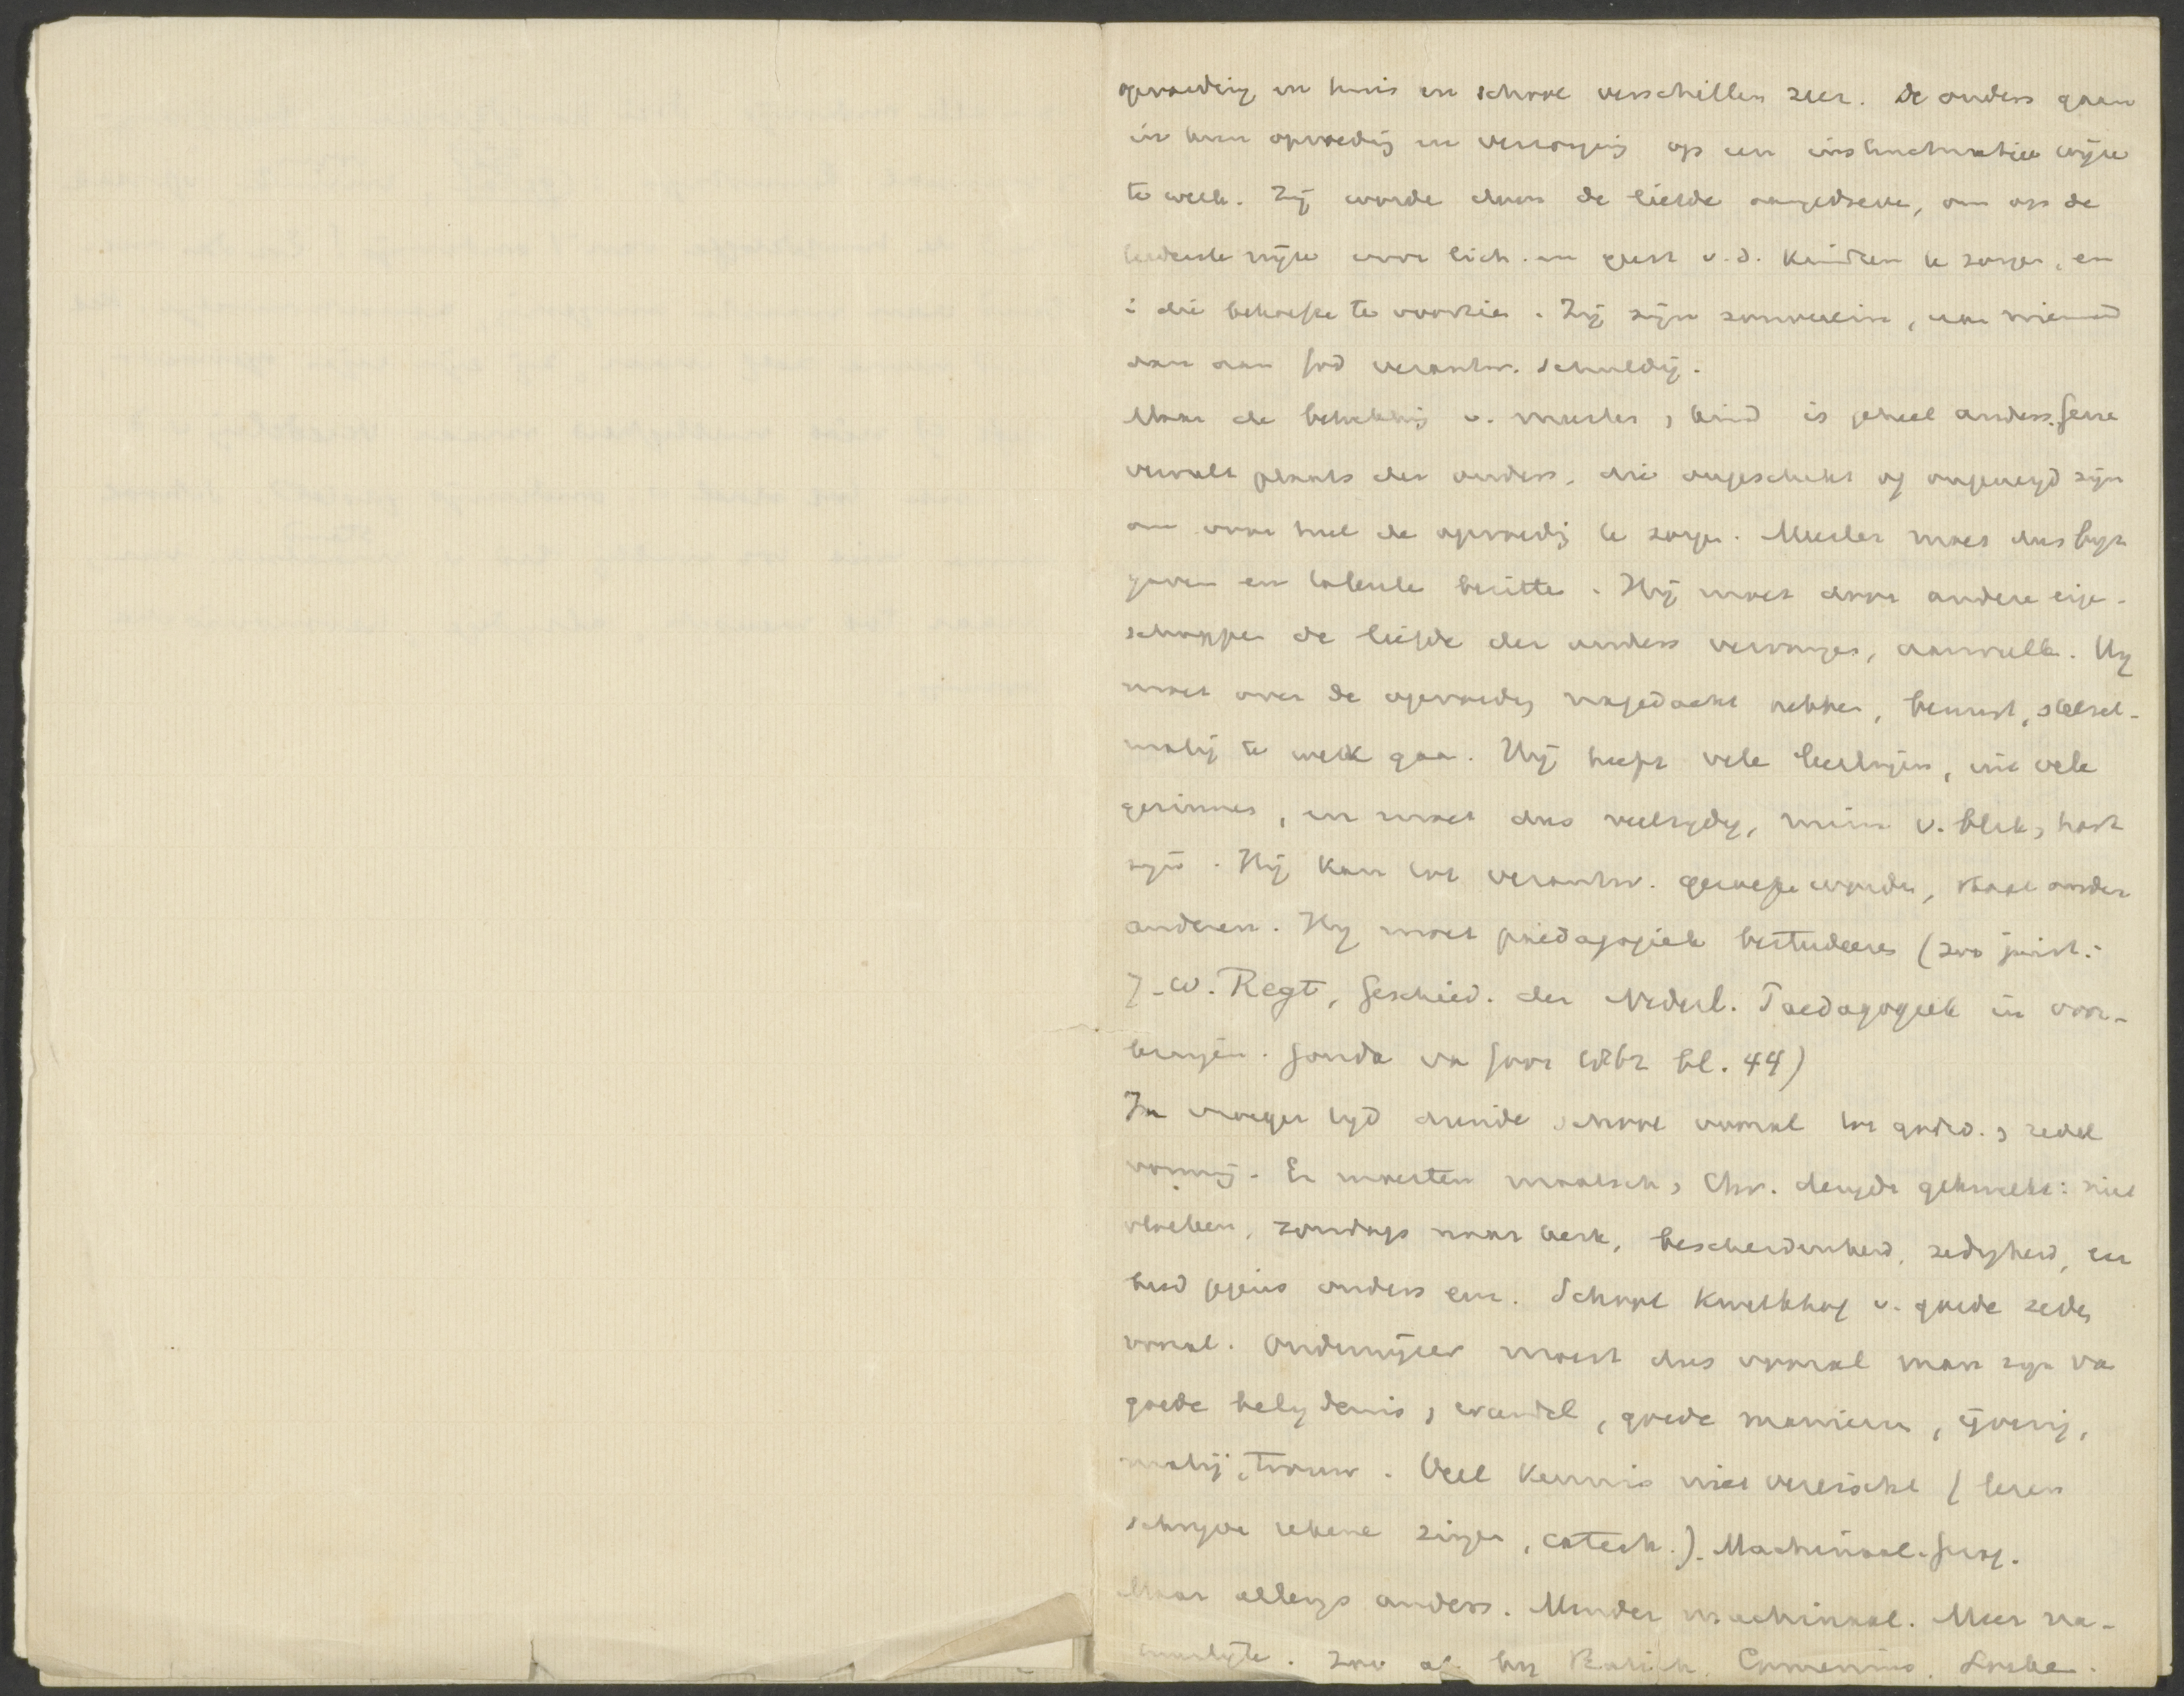 opvoeding in huis en school verschillen zeer. De ouders gaan
in hun opvoedig en verzorging op een instinctmatige wijze
te werk. Zij worde door de liefde aangedreve, om op de
beste wijze voor lich. en geest v.d. kindren te zorgen, en
i die behoefte te voorzie. Zij zijn souverein, aan niemand
dan aan God verantw. schuldig.
Maar de betrekkig v. meester, kind is geheel anders. Gene
vervult plaats der ouders, die ongeschikt of ongeneigd zijn
om voor heel de opvoedig te zorge. Meester moet dus byz
gaven en talente bezitte. Hij moet door andere eige-
schappe de liefde der ouders vervange, aanvulle. Hij
moet over de opvoedig nagedacht hebben, bewust, stelsel-
matig te werk gaa. Hij heeft vele leerlingen, uit vele
gezinnen, en moet dus veelzydig, ruim v. blik, hart
zyn. Hij kan tot verantw. geroepe worde, staat onder
anderen. Hij moet paedagogiek bestudeere (zoo juist:
J. W. Regt, Geschied. der Nederl. Paedagogiek in voor-
bereiding. Gouda va Goor bl. 44)
In vroeger tyd diende school vooral tot godsd., zedel
vorming. Er moesten maatsch, Chr. deugde gekweekt: niet
vloeken, zondags naar kerk, bescheidenheid, zedigheid, eer
bied jegens ouders enz. School kweekhof v. goede zede,
vooral. Onderwijzer moest dus vooral man zyn va
goede belydenis, wandel, goede manieren, ijverig,
matig, trouw. Veel kennis niet vereischt (lezen
schryve rekene zinge, catech.). Machinaal. Geest.
Maar allengs anders. Minder machinaal. Meer na-
. Zoo al by Ratich, Comenius, Locke.